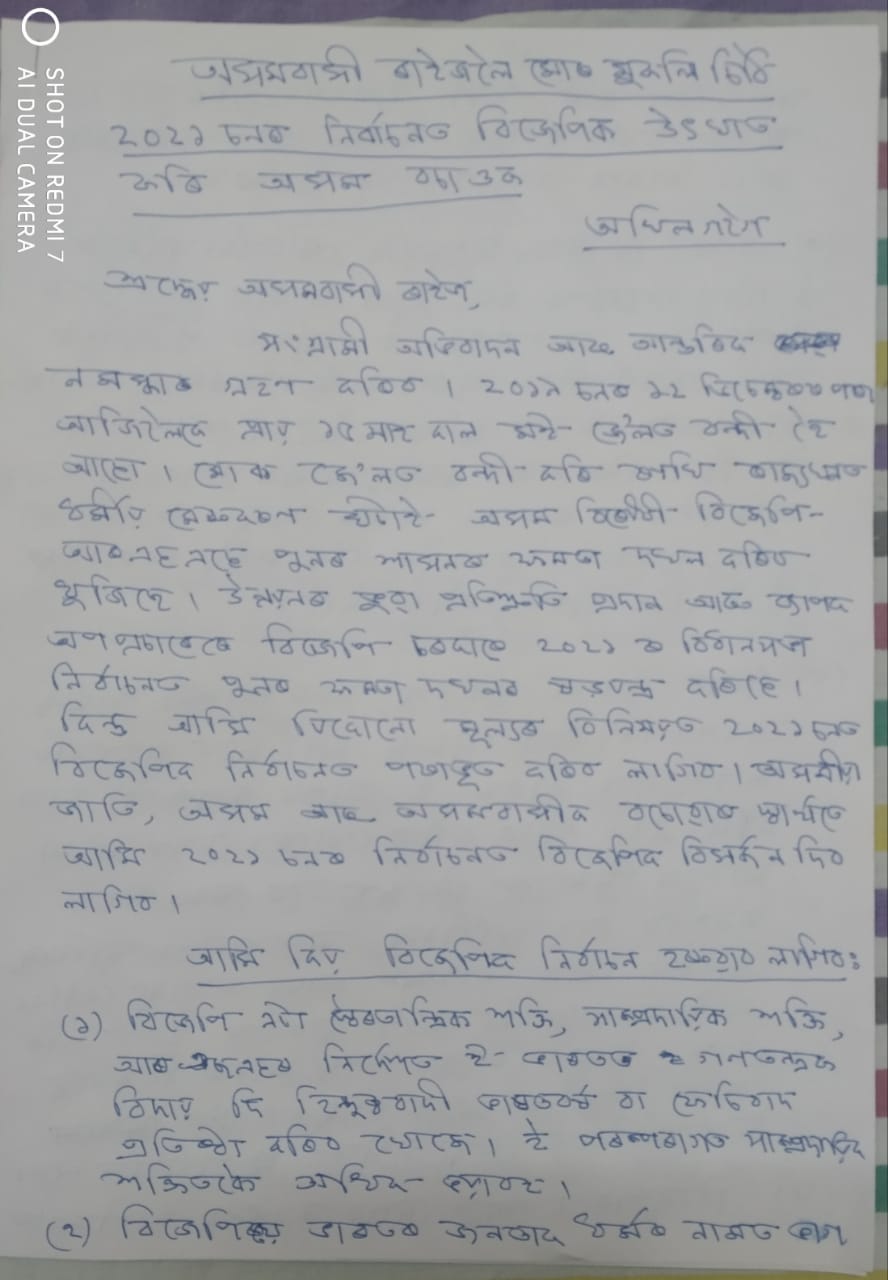 SHOT ON REDMI 7
AI DUAL CAMERA
অসমবাসী ৰাইজলৈ মোৰ মুকলি চিঠি
২০২১ চনৰ নিৰ্বাচনত বিজেপিক উৎখাত
কৰি অসম বচাওক
অখিল গগৈ
শ্ৰদ্ধেয় অসমবাসী ৰাইজ,
সংগ্ৰামী অভিবাদন আৰু আন্তৰিক
নমস্কাৰ গ্ৰহণ কৰিব। ২০১৯ চনৰ ১২ ডিচেম্বৰৰ পৰা
আজিলৈকে প্ৰায় ১৫ মাহ কাল মই জে'লত বন্দী হৈ
আছো। মোক জে'লত বন্দী কৰি ৰাখি ৰাজ্যখনত
ধৰ্মীয় মেৰুকৰণ ঘটাই অসম বিৰোধী বিজেপি-
আৰএছএছে পুনৰ শাসনৰ ক্ষমতা দখল কৰিব
খুজিছে। উন্নয়নৰ ভুৱা প্ৰতিশ্ৰুতি প্ৰদান আৰু ব্যাপক
অপপ্ৰচাৰেৰে বিজেপি চৰকাৰে ২০২১ ৰ বিধানসভা
নিৰ্বাচনত পুনৰ ক্ষমতা দখলৰ ষড়যন্ত্ৰ কৰিছে।
কিন্তু আমি যিকোনো মূল্যৰ বিনিময়ত ২০২১ চনত
বিজেপিক নিৰ্বাচনত পৰাভূত কৰিব লাগিব। অসমীয়া
জাতি, অসম আৰু অসমবাসীক বচোৱাৰ স্বাৰ্থতে
আমি ২০২১ চনৰ নিৰ্বাচনত বিজেপিক বিসৰ্জন দিব
লাগিব।
আমি কিয় বিজেপিক নিৰ্বাচন হৰুৱাব লাগিব:
(১) বিজেপি এটা স্বৈৰতান্ত্ৰিক শক্তি, সাম্প্ৰদায়িক শক্তি,
আৰএছএছৰ নিৰ্দেশত ই ভাৰতত গণতন্ত্ৰক
বিদায় দি হিন্দুত্ববাদী ভাৰতবৰ্ষ বা ফেচিবাদ
প্ৰতিষ্ঠা কৰিব খোজে। ই পৰম্পৰাগত সাম্প্ৰদায়িক
শক্তিতকৈ অধিক ভয়াবহ।
(২) বিজেপিয়ে ভাৰতৰ জনতাক ধৰ্মৰ নামত ভাগ